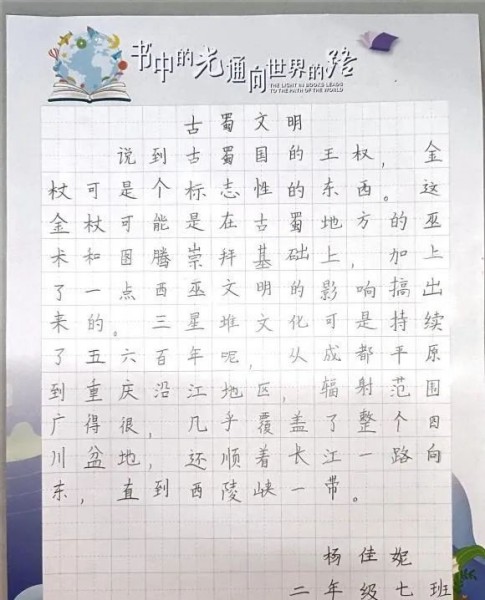 书中的光通向世界的路
THE LIGHT IN BOOKS LEADS
TO THE PATH OF THE WORLD
古蜀文明
说到古蜀国的王权，金
杖可是个标志性的东西。这
金杖可能是在古蜀地方的巫
术和图腾崇拜基础上，加上
了一点西巫文明的影响搞出
来的。三星堆文化可是持续
了五六百年呢，从成都平原
到重庆沿江地区，辐射范围
广得很，几乎覆盖了整个四
川盆地，还顺着长江一路向
东，直到西陵峡一带。
杨佳妮
二年级七班